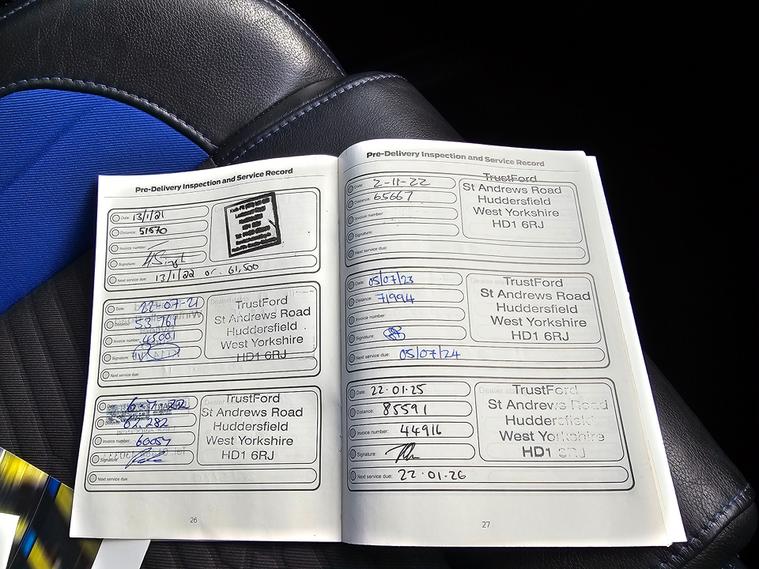 Pre-Delivery Inspection and Service Record
Date: 13/1/21
Distance: 51570
Invoice number:
Signature:
Next service due: 13/1/22 or 61,500
Date: 22-07-21
53761
Invoice number: 45091
Signature:
Next service due:
TrustFord
St Andrews Road
Huddersfield
West Yorkshire
HD1 6RJ
62,282
Invoice number: 60057
Signature:
Next service due:
TrustFord
St Andrews Road
Huddersfield
West Yorkshire
HD1 6RJ
26
Pre-Delivery Inspection and Service Record
Date: 2-11-22
Distance: 65667
Invoice number:
Signature:
Next service due:
TrustFord
St Andrews Road
Huddersfield
West Yorkshire
HD1 6RJ
Date: 05/07/23
Distance: 71994
Invoice number:
Signature:
Next service due: 05/07/24
TrustFord
St Andrews Road
Huddersfield
West Yorkshire
HD1 6RJ
Date: 22.01.25
Distance: 85591
Invoice number: 44916
Signature:
Next service due: 22.01.26
TrustFord
St Andrews Road
Huddersfield
West Yorkshire
HD1 6RJ
27